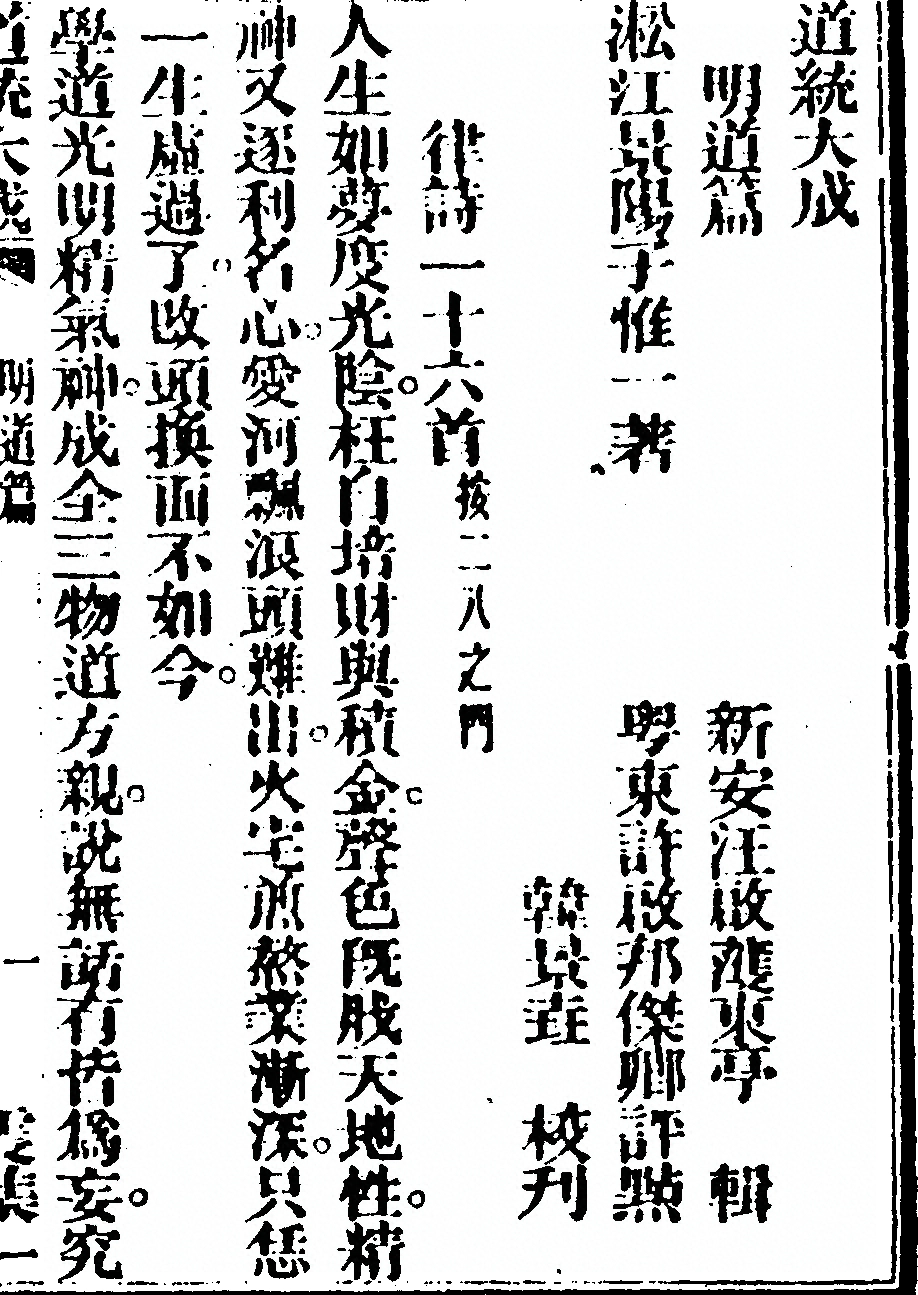 道統大成
明道篇
新安汪啟濩東亭 輯
淞江景陽子惟一著
粤東許啟邦傑卿評點
韓景垚 校刋
律詩一十六首 按二八之門
人生如夢度光陰。枉自培財與積金。聲色既戕天地性。精
神又逐利名心。愛河飄浪頭難出。火宅煎熬業漸深。只恁
一生虛過了。改頭換面不如今。
學道光明精氣神。成全三物道方親。說無話有皆為妄。究
道統大成 明道篇 一